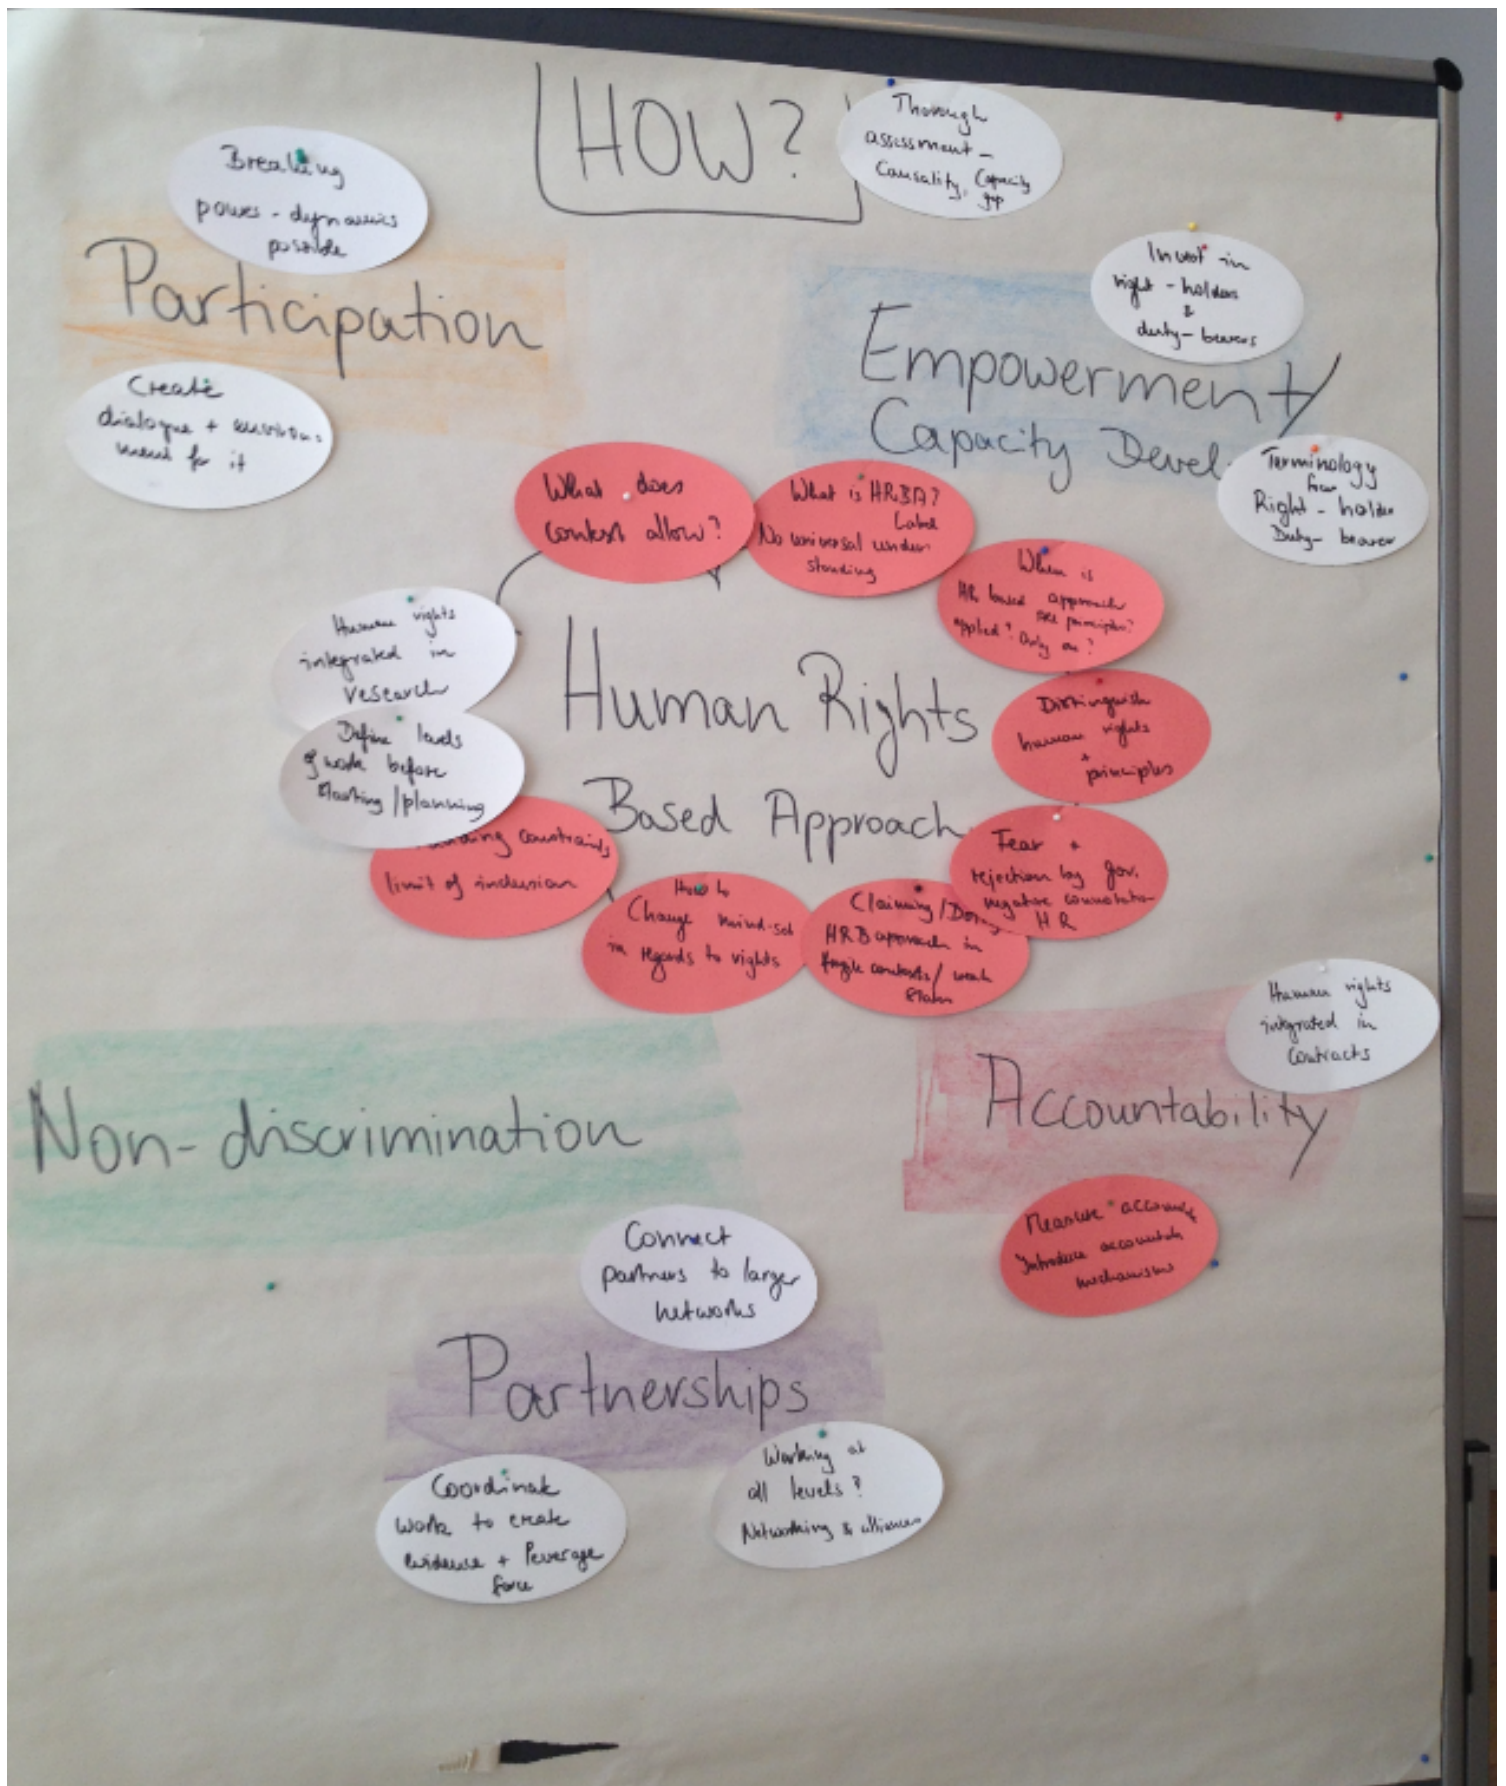 HOW?
Thorough
assessment -
Causality, Capacity
gap
Breaking
power - dynamics
possible
Participation
Create
dialogue + environ-
ment for it
Invest in
right - holders
&
duty - bearers
Empowerment/
Capacity Devel
Terminology
from
Right - holder
Duty - bearer
What does
context allow?
What is HRBA?
Label
No universal under-
standing
When is
HR based approach
applied? Only on?
principles?
Human rights
integrated in
research
Define levels
of work before
starting/planning
Human Rights
Based Approach
Distinguish
human rights
+
principles
Fear +
rejection by gov.
negative connotation
HR
constraints
limit of inclusion
How to
Change mind-set
in regards to rights
Claiming/
HRB approach in
fragile contexts/ weak
Human rights
integrated in
contracts
Non-discrimination
Accountability
Measure
Introduce
mechanisms
Connect
partners to larger
networks
Partnerships
Coordinate
work to create
evidence + leverage
force
Working at
all levels?
Networking & alliances